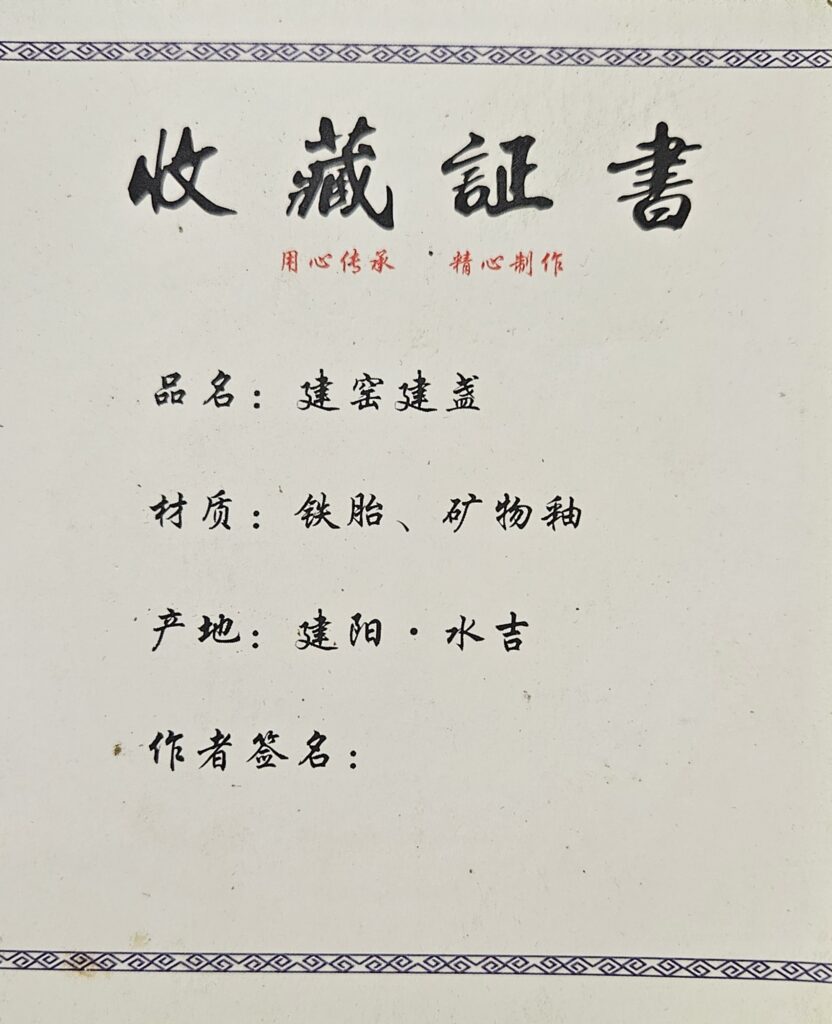 收藏証書
用心传承 精心制作
品名：建窑建盏
材质：铁胎、矿物釉
产地：建阳·水吉
作者签名：